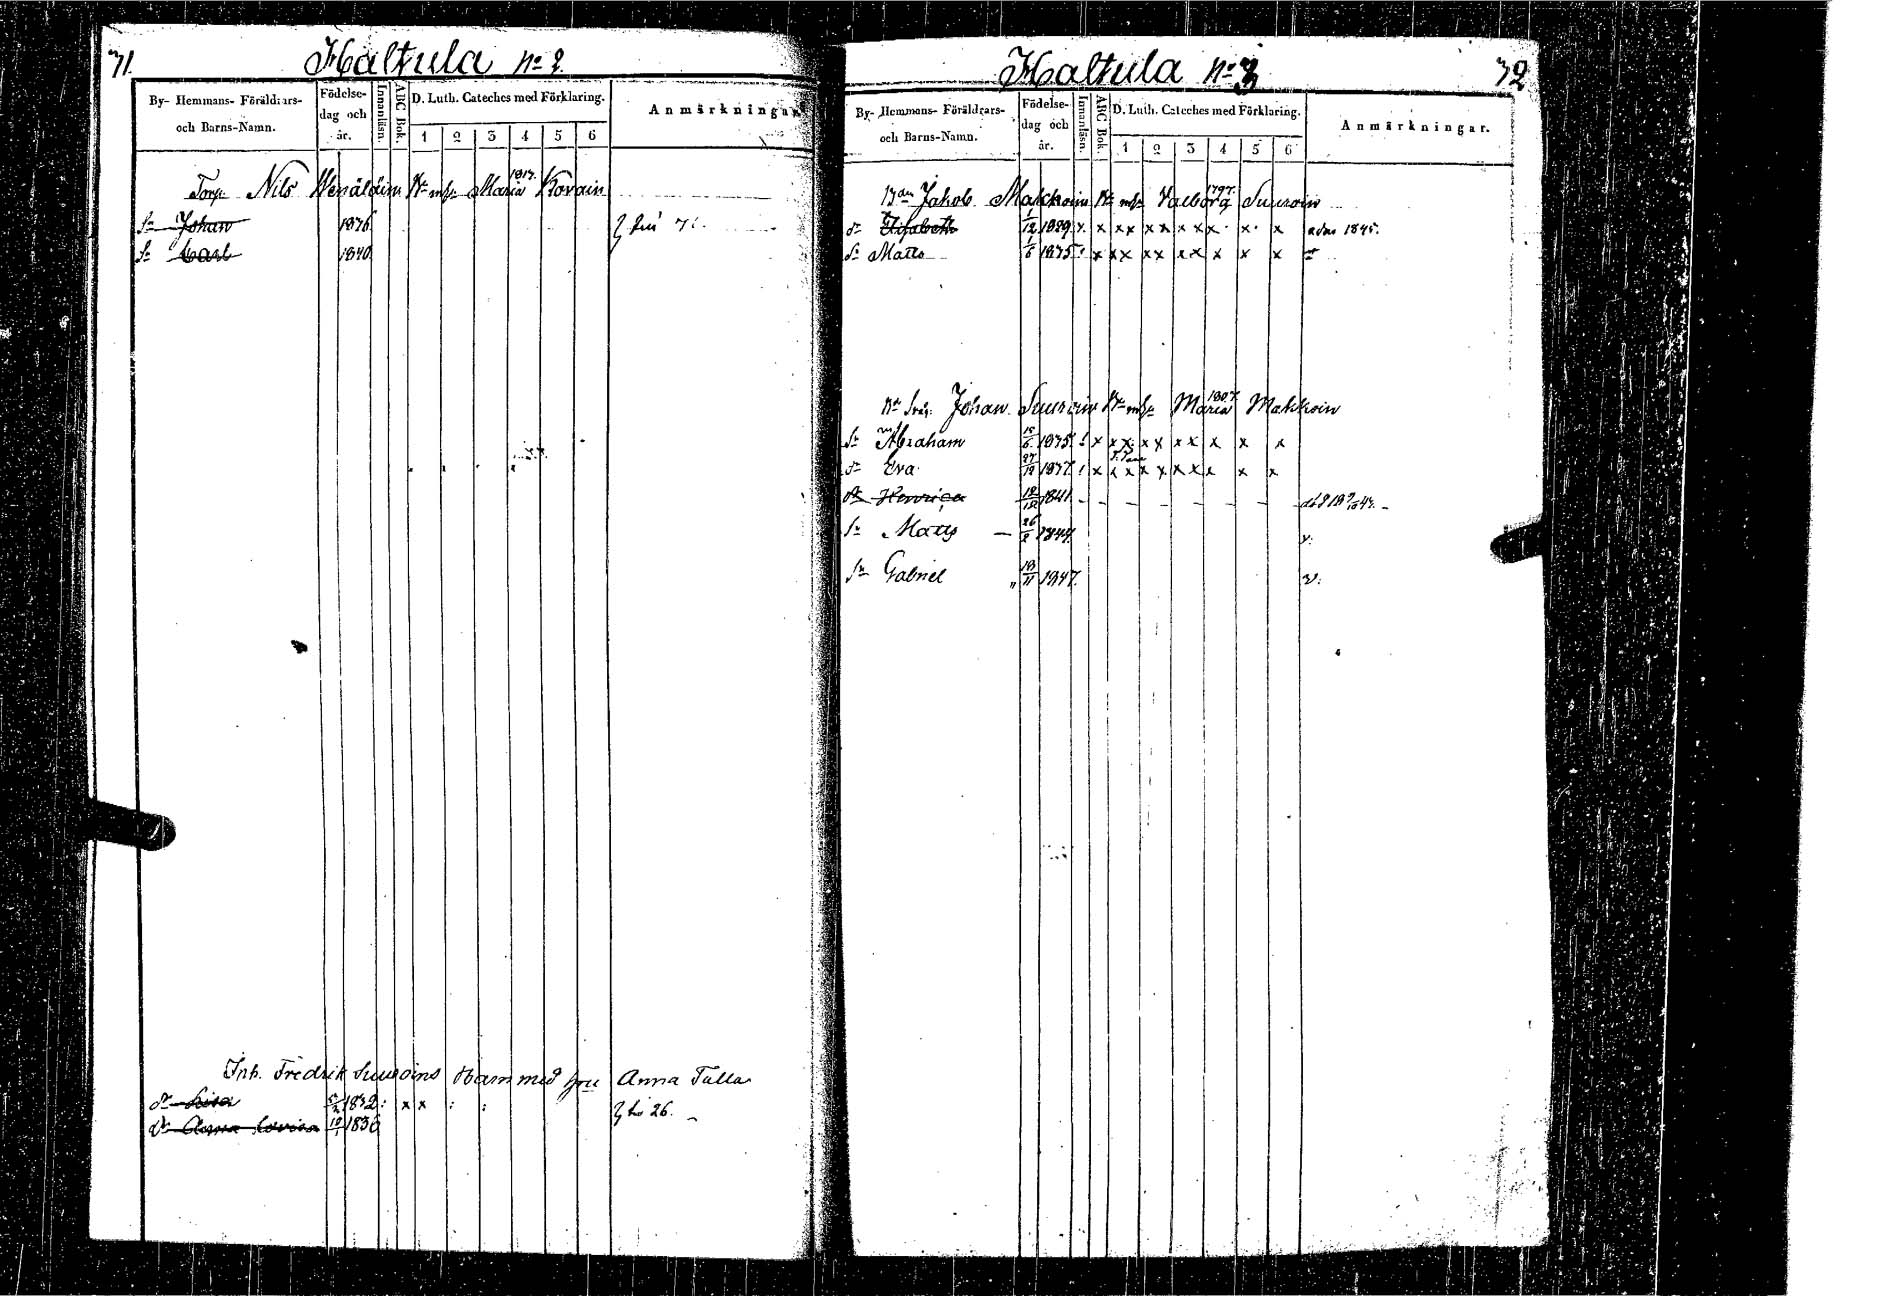 71.
Haltula No 2.
By- Hemmans- Föräldrars- och Barns-Namn.
Födelse- dag och år.
Innanläsn.
ABC Bok.
D. Luth. Cateches med Förklaring.
1 2 3 4 5 6
Anmärkningar.
Torp. Nils Maria 1817. Kovain
Sn Johan 1836
Sn Carl 1840
Inh. Fredrik Suuroins Barn med hru Anna Tulla
dr Lisa 5/2 1832 : x x : :
dr Anna Lovisa 10/1 1836
Haltula No 3
72
By- Hemmans- Föräldrars- och Barns-Namn.
Födelse- dag och år.
Innanläsn.
ABC Bok.
D. Luth. Cateches med Förklaring.
1 2 3 4 5 6
Anmärkningar.
Bden Jakob Makkoin Valborg 1797. Suuroin
dr Elisabeth 1/12 1829 x x x x x x x x x x x adm 1845.
Sn Matts 1/6 1835 x x x x x x x x x x
Johan Suuroin Maria 1807. Makkoin
Sn Abraham 15/6 1835 x x x x x x x x x x
dr Eva 27/12 1837 x x x x x x x x x x
dr Henrica 12/12 1841 - - - - - - -
Sn Matts — 26/2 1844. v.
Sn Gabriel 13/11 1847. v.